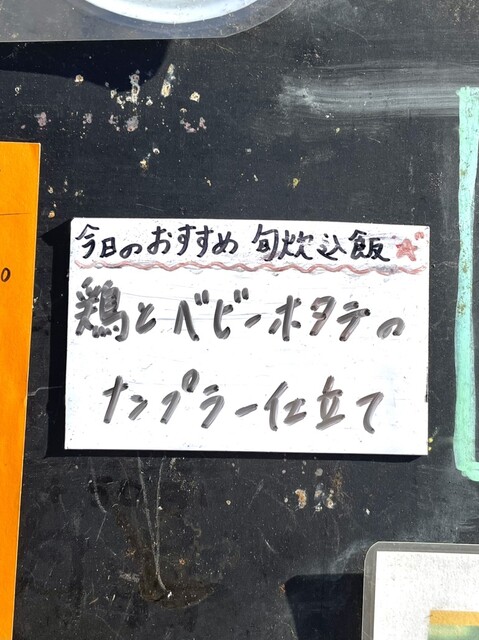 今日のおすすめ 旬炊込飯
鶏とベビーポタテの
ナンプラー仕立て
0